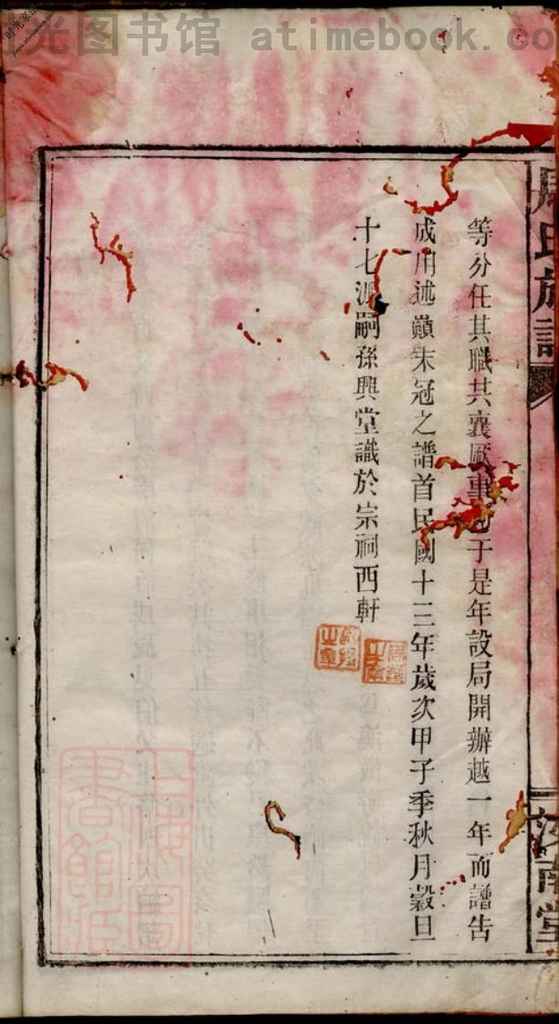 光图书馆 atimebook.co
等分任其職共襄厥事于是年設局開辦越一年而譜告
成用述巔末冠之譜首民國十三年歲次甲子季秋月穀旦
十七派嗣孫興堂識於宗祠西軒
氏族譜
南堂